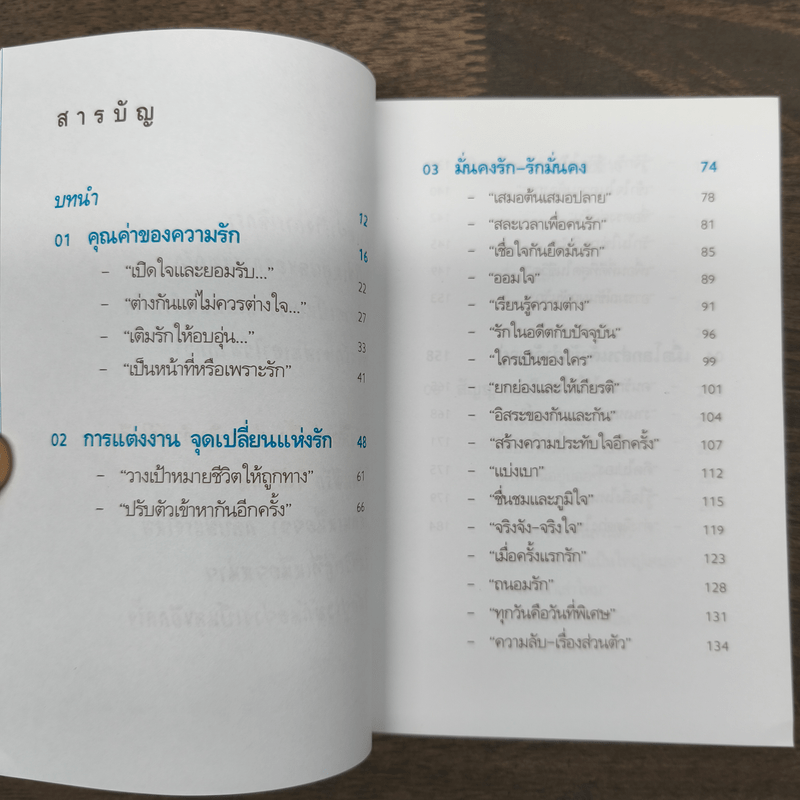 สารบัญ
บทนำ 12
01 คุณค่าของความรัก 16
– “เปิดใจและยอมรับ...” 22
– “ต่างกันแต่ไม่ควรต่างใจ...” 27
– “เติมรักให้อบอุ่น...” 33
– “เป็นหน้าที่หรือเพราะรัก” 41
02 การแต่งงาน จุดเปลี่ยนแห่งรัก 48
– “วางเป้าหมายชีวิตให้ถูกทาง” 61
– “ปรับตัวเข้าหากันอีกครั้ง” 66
03 มั่นคงรัก-รักมั่นคง 74
– “เสมอต้นเสมอปลาย” 78
– “สละเวลาเพื่อคนรัก” 81
– “เชื่อใจกันยึดมั่นรัก” 85
– “ออมใจ” 89
– “เรียนรู้ความต่าง” 91
– “รักในอดีตกับปัจจุบัน” 96
– “ใครเป็นของใคร” 99
– “ยกย่องและให้เกียรติ” 101
– “อิสระของกันและกัน” 104
– “สร้างความประทับใจอีกครั้ง” 107
– “แบ่งเบา” 112
– “ชื่นชมและภูมิใจ” 115
– “จริงจัง-จริงใจ” 119
– “เมื่อครั้งแรกรัก” 123
– “ถนอมรัก” 128
– “ทุกวันคือวันที่พิเศษ” 131
– “ความลับ-เรื่องส่วนตัว” 134